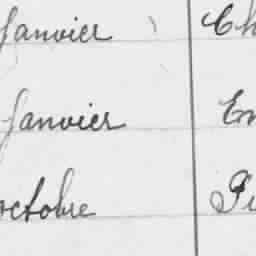 Janvier Ch
Janvier En
octobre